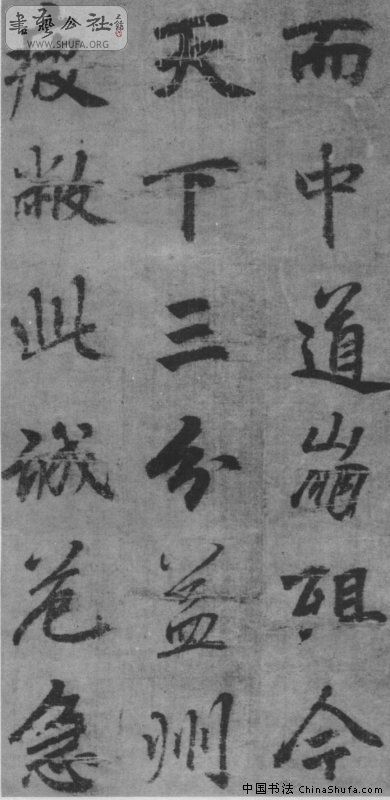 而中道崩殂今
天下三分益州
疲敝此誠危急
書藝公社
WWW.SHUFA.ORG
中国书法 ChinaShufa.com